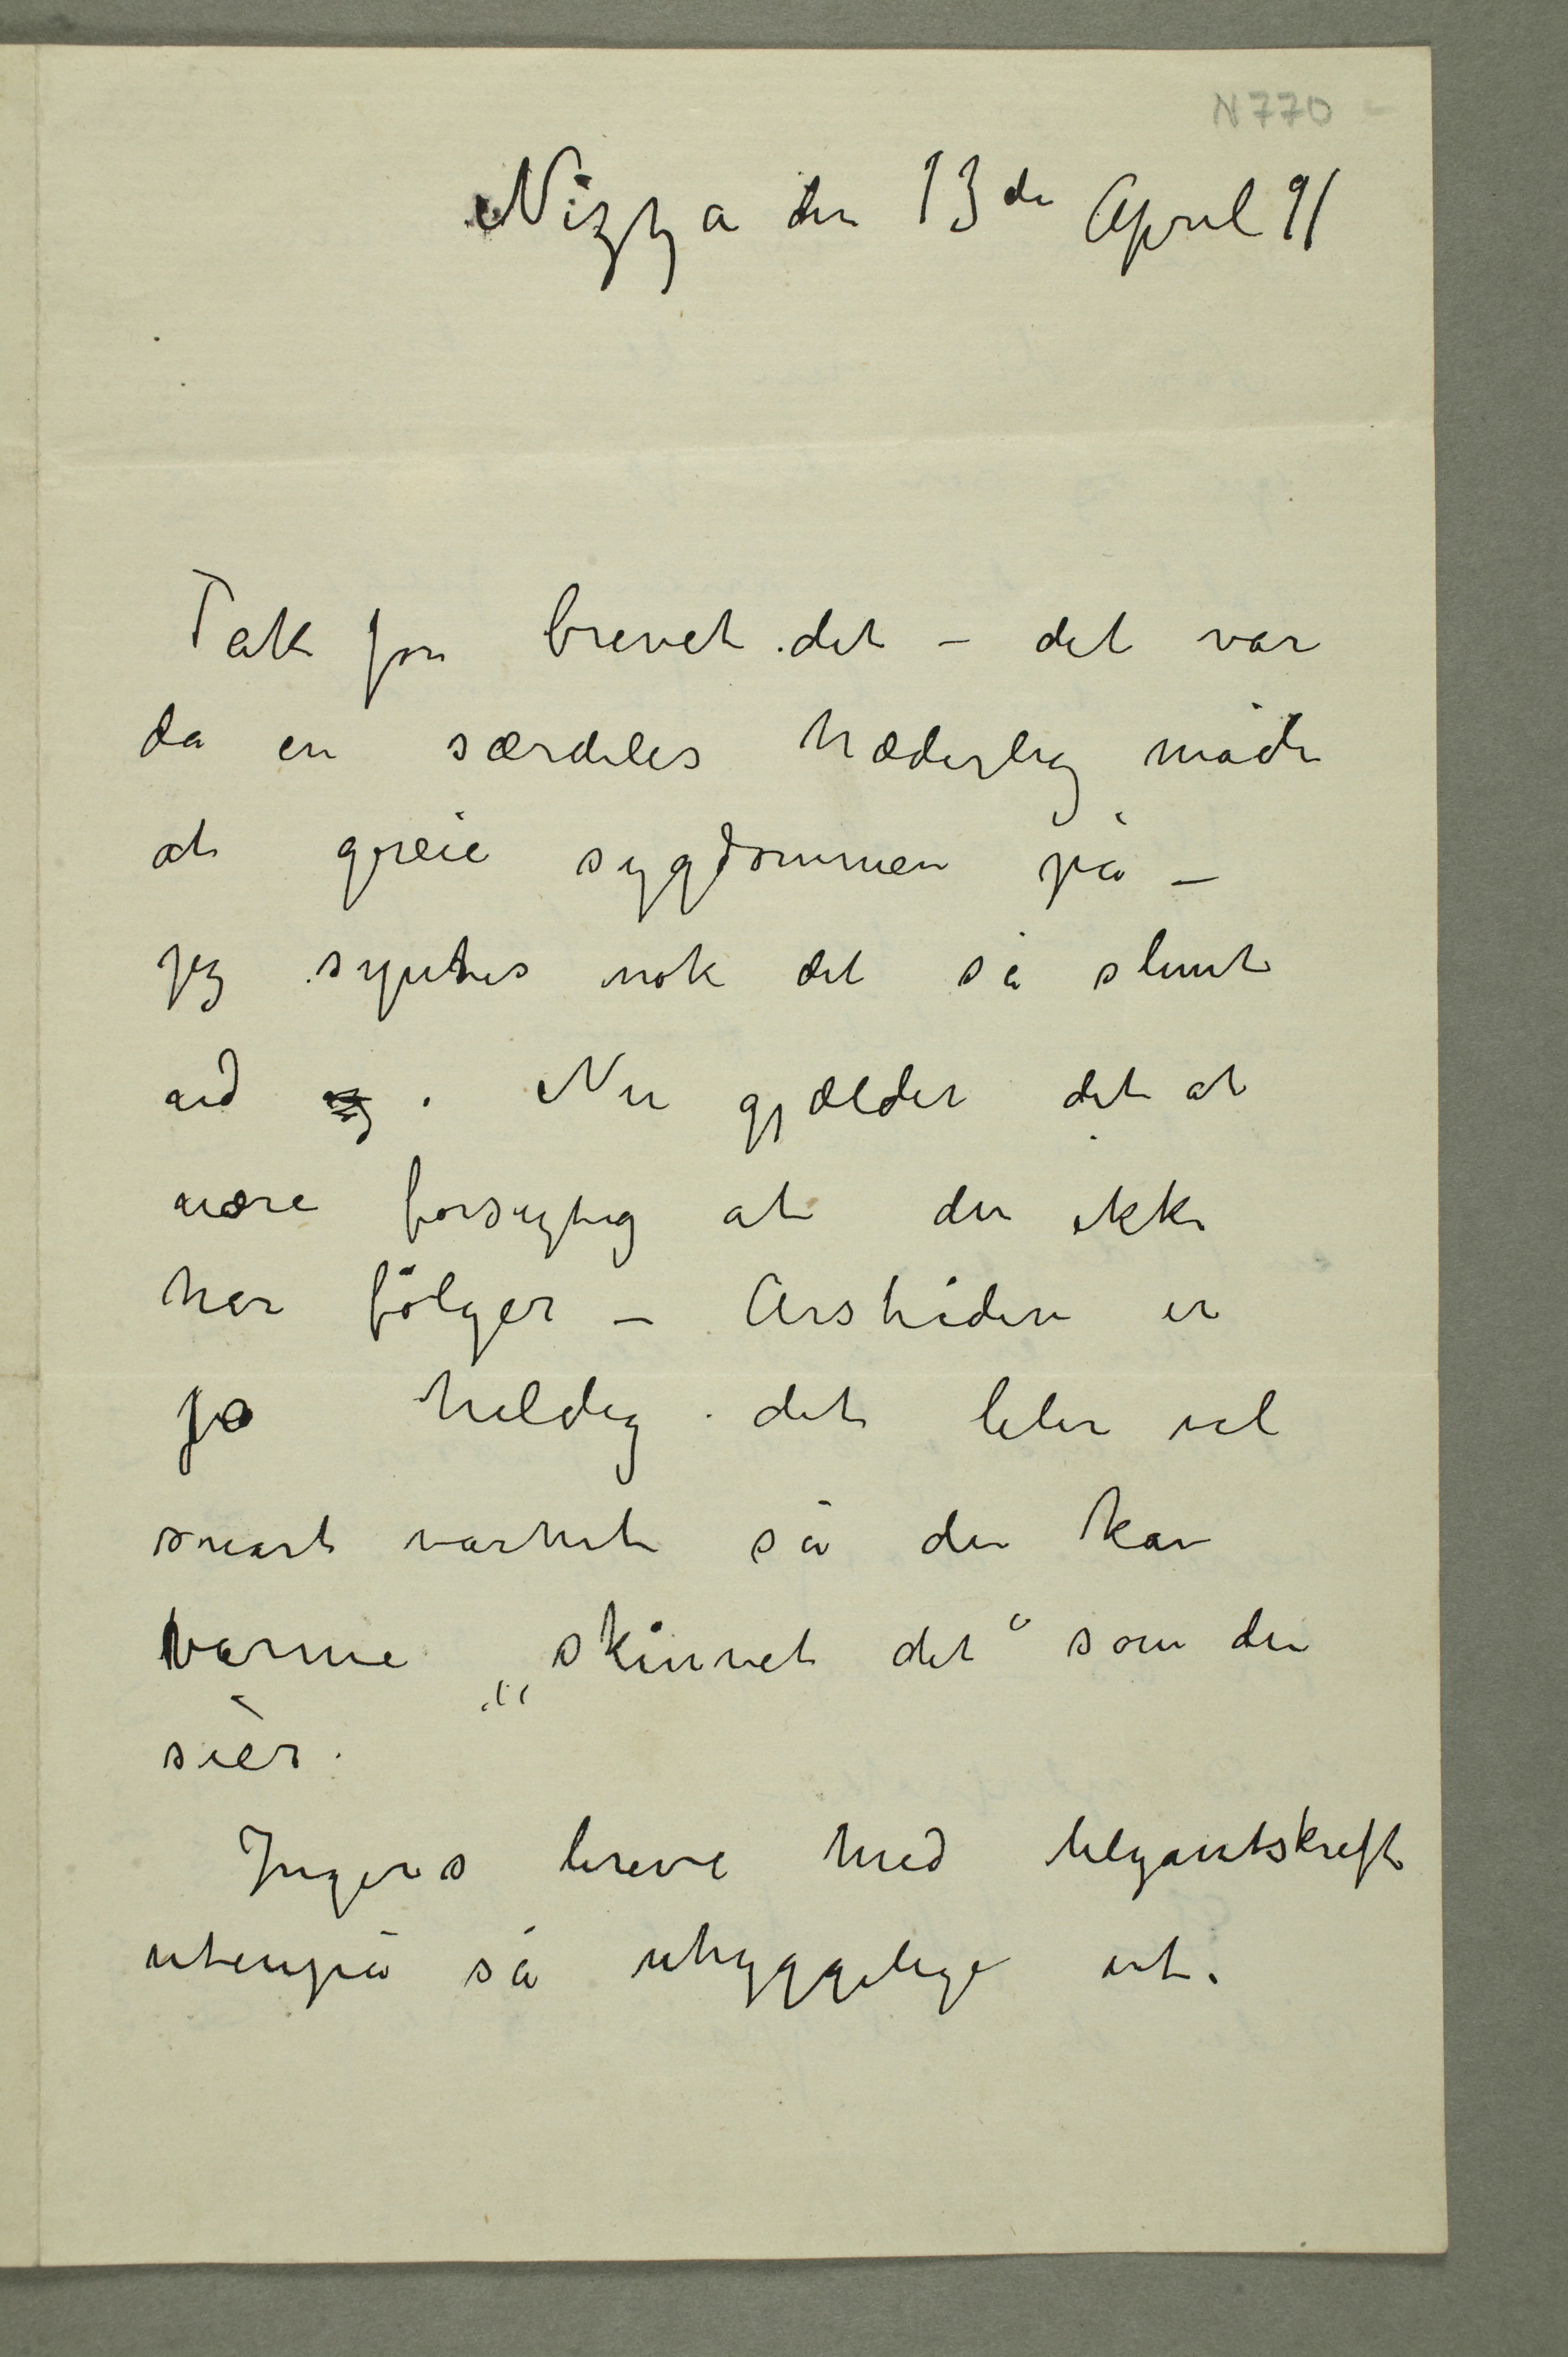 N 770
Nizza den 13de April 91
Tak for brevet dit – det var
da en særdeles hæderlig måde
at greie sygdommen på –
jeg syntes nok det så slemt
ud. Nu gjælder det at
være forsigtig at du ikke
har følger – Årstiden er
jo heldig. det blir vel
snart varmt så du kan
varme „skinnet dit“ som du
sier.
Ingers breve med elegantskrift
utenpå så uhyggelige ut.